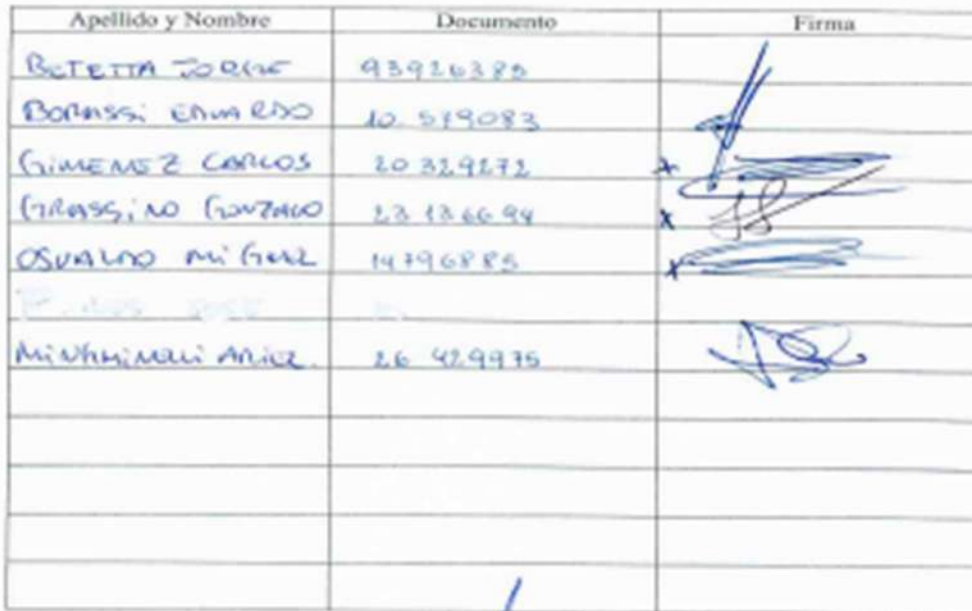 Apellido y Nombre Documento Firma
BETETTA JORGE 93926385
BORASSi EDUARDO 10.579083
GIMENEZ CARLOS 20 329272 x
GRASSiNO GONZALO 23 136694 x
OSVALDO MiGUEL 14796885 x
ARIEL 26 429975